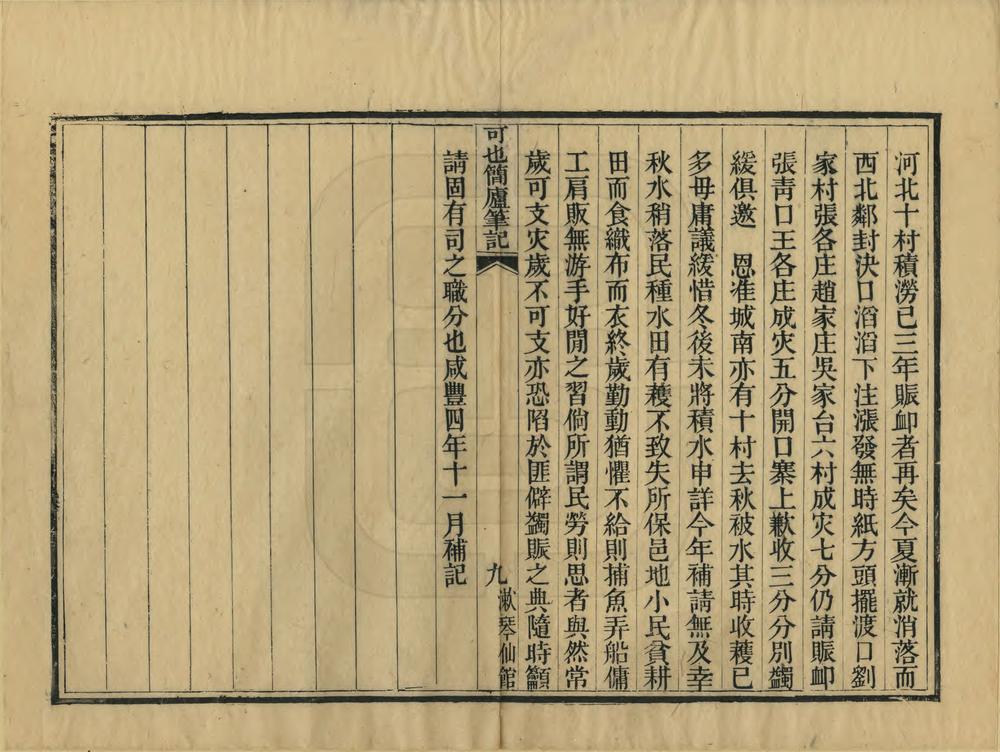 河北十村積澇已三年賑卹者再矣今夏漸就消落而
西北鄰封決口滔滔下注漲發無時紙方頭擺渡口劉
家村張各庄趙家庄吳家台六村成灾七分仍請賑卹
張靑口王各庄成灾五分開口寨上歉收三分分別蠲
緩俱邀　恩准城南亦有十村去秋被水其時收穫已
多毋庸議緩惜冬後未將積水申詳今年補請無及幸
秋水稍落民種水田有穫不致失所保邑地小民貧耕
田而食織布而衣終歲勤動猶懼不給則捕魚弄船傭
工肩販無游手好閒之習倘所謂民勞則思者與然常
歲可支灾歲不可支亦恐陷於匪僻蠲賑之典隨時籲
可也簡廬筆記
九
漱琴仙館
請固有司之職分也咸豐四年十一月補記